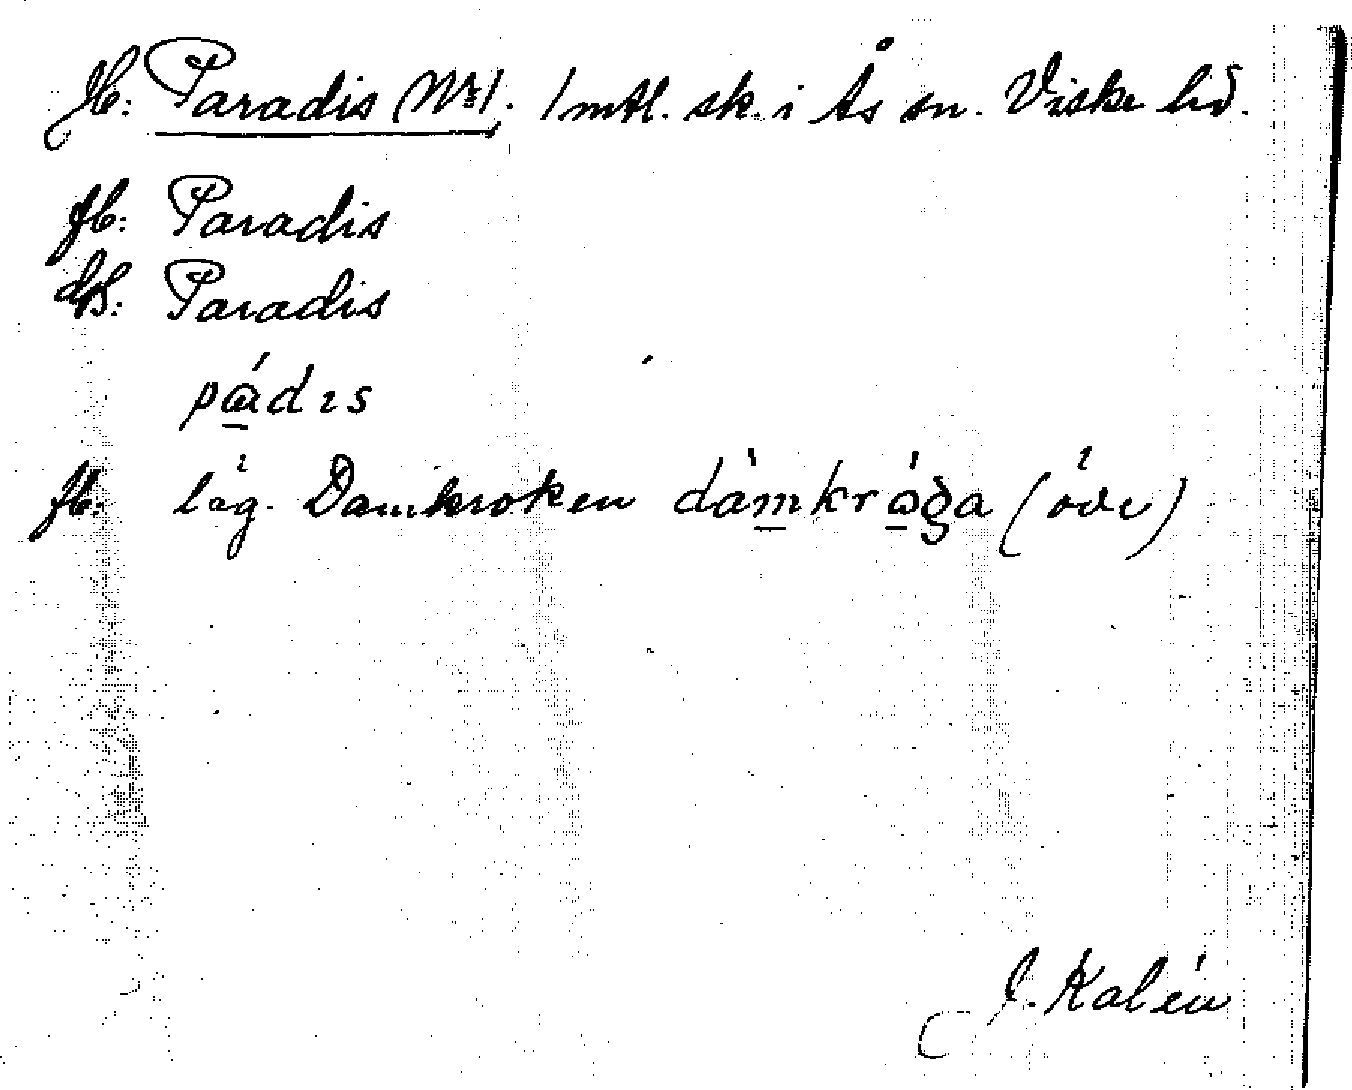 Jb: Paradis Nr 1. 1 mtl. sk. i Ås sn. Viske hd.
fb: Paradis
db: Paradis
pá̱dıs
fb: låg. Damkroken dàm̱krò̱ga (öde)
J. Kalén